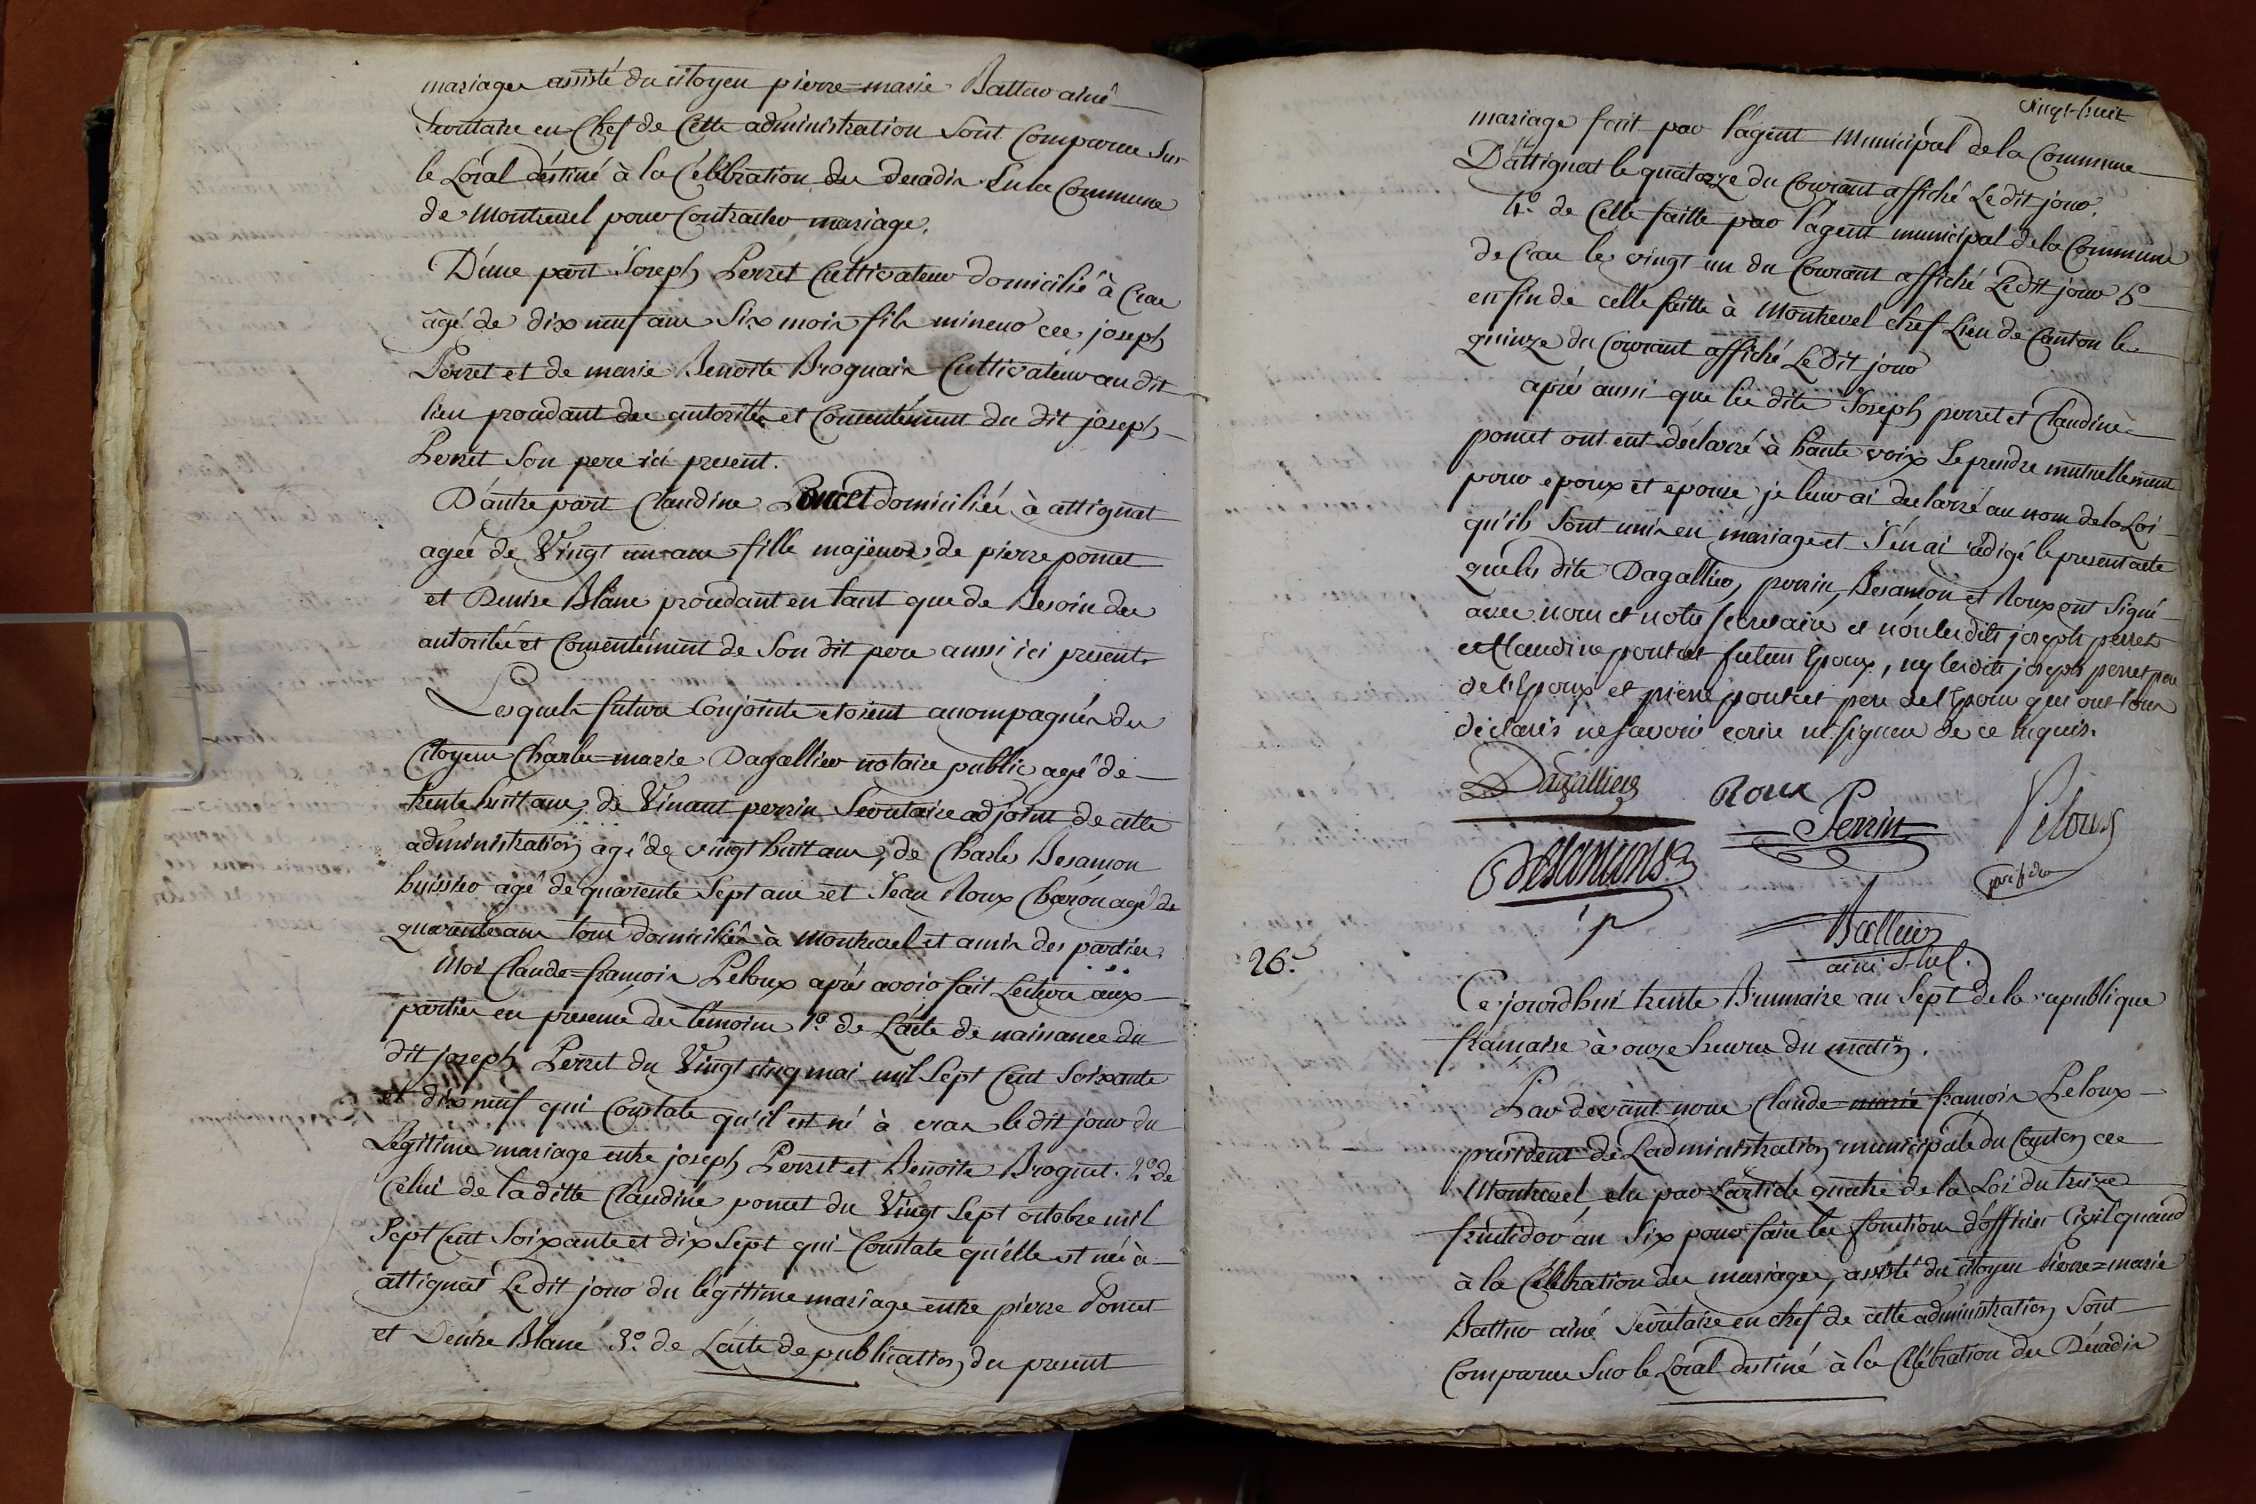 mariages assisté du citoyen pierre=marie Battur ainé
Secretaire en Chef de Cette administration Sont Comparus Sur
le Local déstiné à la Célébration des decadis en la Commune
de Montrevel pour Contracter mariage.
D'une part Joseph Perret Cultivateur domicilié à Cras
âgé de dix neuf ans Six mois fils mineur de joseph
Perret et de marie Benoite Brognard Cultivateur au dit
lieu procedant des autorités et Consentement du dit joseph
Perret Son pere ici present.
D'autre part Claudine Poncet domiciliée à attignat
agée de Vingt un ans fille majeure de pierre poncet
et Denise Blanc procédant en tant que de Besoin des
autorités et Consentément de Son dit pere aussi ici present.
Lesquels futurs Conjoints etoient acompagnés du
Citoyen Charle=marie Dagallier notaire public agé de
trente huit ans, de Vincent perrin Secretaire adjoint de cette
administration agé de vingt huit ans, de Charles Besançon
huissier agé de quarente Sept ans et Jean Roux Charon agé de
quarente ans tous domiciliés à Montrevel et amis des parties.
Moi Claude=françois Peloux aprés avoir fait Lecture aux
parties en presence des temoins 1.º de L'acte de naissance du
dit joseph Perret du Vingt cinq mai mil Sept Cent Soixante
et dix neuf qui Constate qu'il est né à cras le dit jour du
Legitime mariage entre joseph Perret et Benoite Brognat. 2.º de
Celui de la ditte Claudine poncet du Vingt Sept octobre mil
Sept Cent Soixante et dix Sept qui Constate qu'elle est née à
attignat Le dit jour du légitime mariage entre pierre Poncet
et Denise Blanc 3.º de L'acte de publication du present
vingt-huit
mariage fait par l'agent Municipal de la Commune
D'attignat le quatorze du Courant affiché Le dit jour.
4.º de Celle faitte par l'agent municipal de la Commune
de Cras le vingt un du Courant affiché Le dit jour 5.º
enfin de celle faitte à Montrevel chef Lieu de Canton le
quinze du Courant affiché Le dit jour
aprés aussi que les dits Joseph perret et Claudine
poncet ont eut declarré à haute voix Se prendre mutuellement
pour epoux et epouse je leur ai declarré au nom de la Loi
qu'ils Sont unis en mariage et J'en ai rédigé le present acte
que les dits Dagallier, perrin, Besançon et Roux ont Signé
avec nous et notre secretaire et non les dits joseph perret
et Claudine pontcet futurs Epoux, ny les dits joseph perret pere
de l'Epoux et pierre pontcet pere de l'Epouse qui ont tous
déclarés ne savoir ecrire ni signer de ce enquis.
Dagallier
Roux
Perrin
Peloux
président
Besançons
Battur
ainé S. in C.
26.e
Ce jourd'hui trente Brumaire an Sept de la republique
française à onze heures du matin.
Par devant nous Claude=marie françois Peloux
président de L'administration municipale du Canton de
Montrevel, elu par L'article quatre de la Loi du treize
fructidor an Six pour faire les fonctions d'officier Civil quand
à la Célébration des mariages, assisté du citoyen Pierre=marie
Battur ainé Secretaire en chef de cette administration Sont
Comparus Sur le Local destiné à la Célébration des Décadis